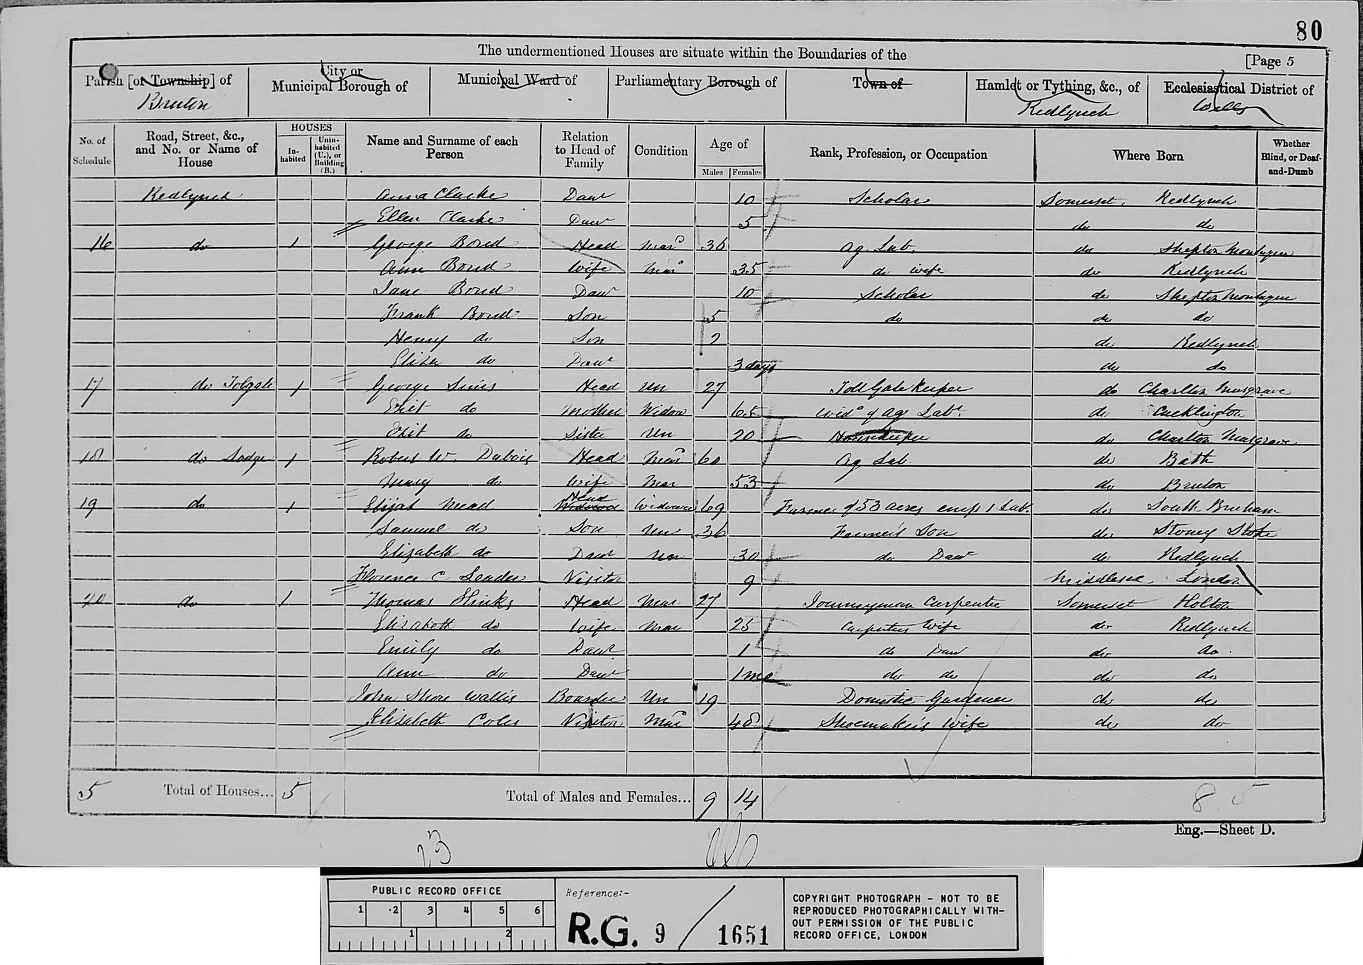 80
The undermentioned Houses are situate within the Boundaries of the
[Page 5
Parish [or Township] of
Bruton
City or Municipal Borough of
Municipal Ward of
Parliamentary Borough of
Town of
Hamlet or Tything, &c., of
Redlynch
Ecclesiastical District of
No. of Schedule
Road, Street, &c., and No. or Name of House
HOUSES
In-habited
Unin-habited (U.), or Building (B.)
Name and Surname of each Person
Relation to Head of Family
Condition
Age of
Males
Females
Rank, Profession, or Occupation
Where Born
Whether Blind, or Deaf-and-Dumb
Redlynch Anna Clarke Daur 10 Scholar Somerset Redlynch
Ellen Clarke Daur 5 do do
16 do 1 George Bord Head Mar 36 Ag Lab do Shepton Montague
Ann Bord Wife Mar 35 do wife do Redlynch
Jane Bord Daur 10 Scholar do Shepton Montague
Frank Bord Son 5 do do do
Henry do Son 2 do Redlynch
Eliza do Daur 3 days do do
17 do Tolgate 1 George Sims Head Un 27 Toll Gate Keeper do Charlton Musgrave
do Mother Widow Wid of Ag Labr do Cucklington
do Sister Un 20 Housekeeper do Charlton Musgrave
18 do Lodge 1 Robert W. Dubois Head Mar 60 Ag Lab do Bath
Mary do Wife Mar 53 do Bruton
19 do 1 Elijah Mead Head Widower 69 Farmer of 53 acres emp 1 Lab. do South Bruham
Samuel do Son Un 36 Farmer's Son do Stoney Stoke
Elizabeth do Daur Un 30 do Daur do Redlynch
Florence C Leader Visitor 9 Middlesex London
20 do 1 Thomas Hinks Head Mar 27 Journeyman Carpenter Somerset Holton
Elizabeth do Wife Mar 25 Carpenters Wife do Redlynch
Emily do Daur 1 do Daur do do
Ann do Daur 1 mo do do do do
John Shore Wallis Boarder Un 19 Domestic Gardener do do
Elizabeth Coles Visitor Mar 48 Shoemaker's Wife do do
5 Total of Houses... 5 Total of Males and Females... 9 14
8 5
Eng.—Sheet D.
23
PUBLIC RECORD OFFICE
1 2 3 4 5 6
1 2
Reference:-
R.G. 9 / 1651
COPYRIGHT PHOTOGRAPH - NOT TO BE
REPRODUCED PHOTOGRAPHICALLY WITH-
OUT PERMISSION OF THE PUBLIC
RECORD OFFICE, LONDON